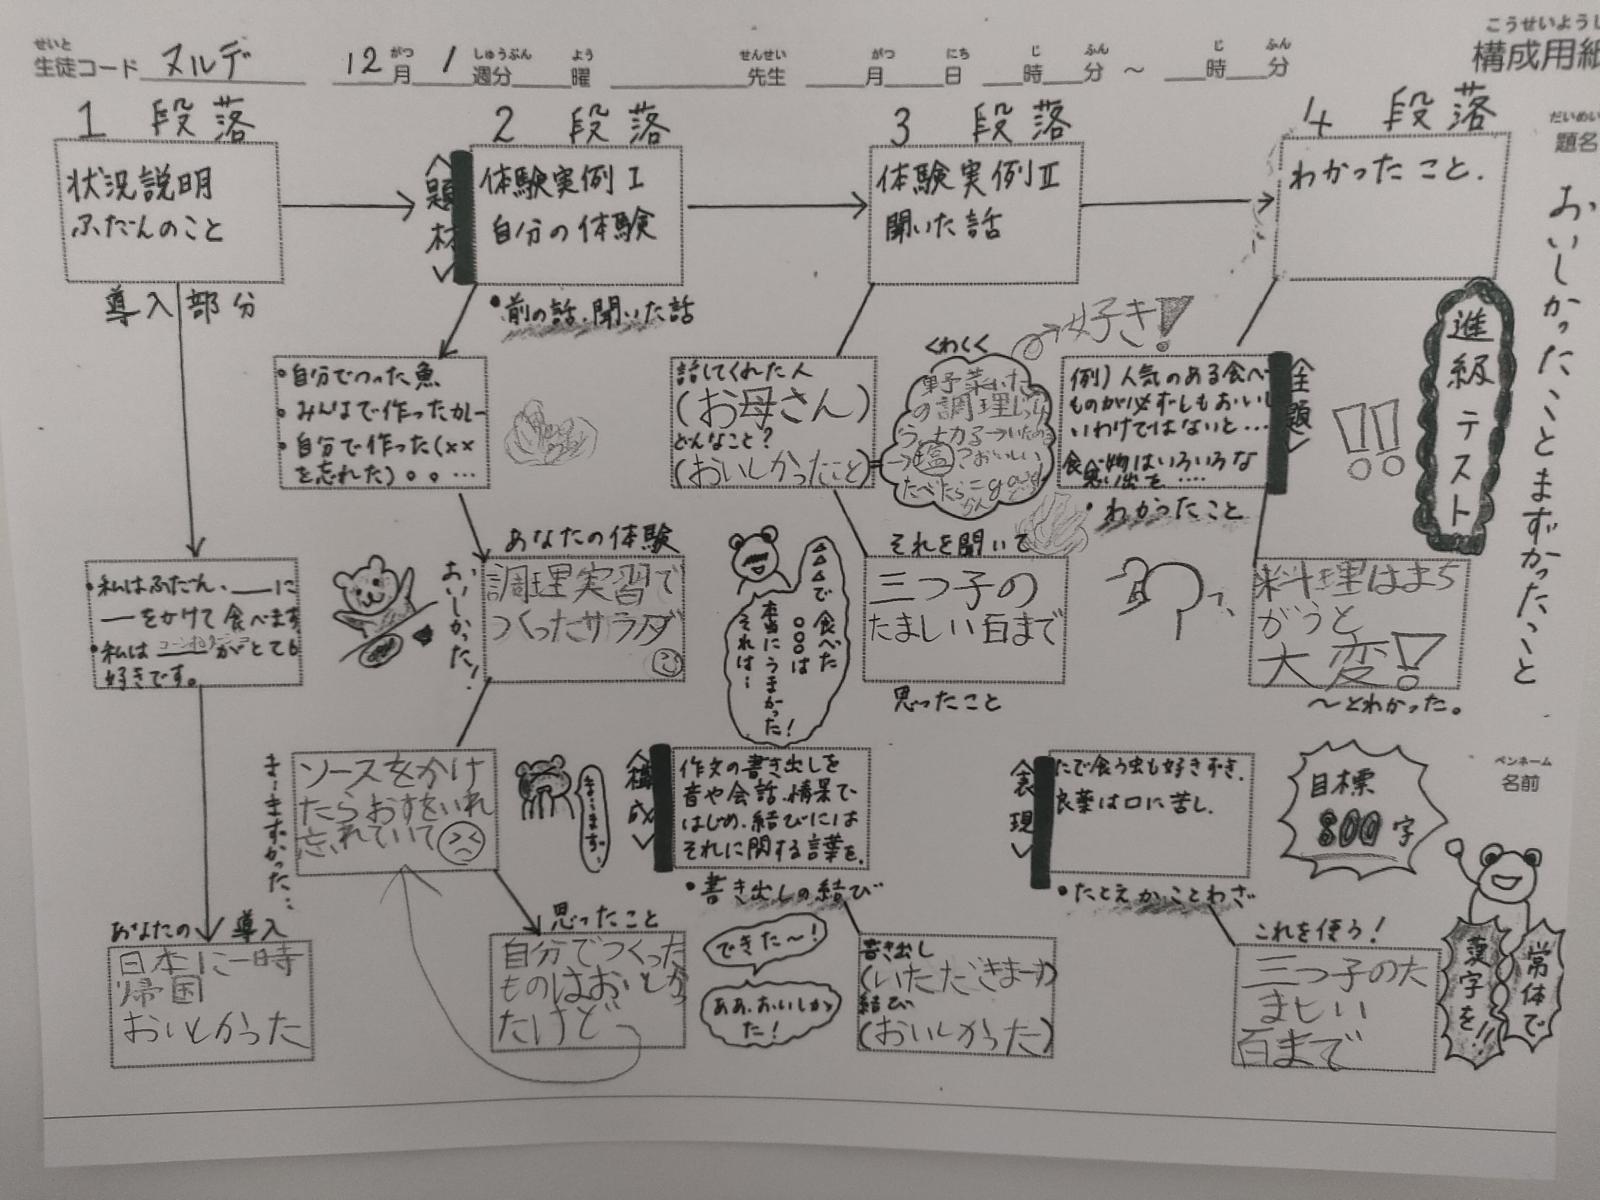 せいと
生徒コード ヌルデ
12月 1週分 曜 先生 月 日 時 分 ～ 時 分
がつ しゅうぶん よう せんせい がつ にち じ ふん じ ふん
こうせいようし
構成用紙
だいめい
題名
おいしかったことまずかったこと
進級テスト
1 段落
状況説明
ふだんのこと
導入部分
・私はふだん、___に
―をかけて食べます。
・私は がとても
好きです。
あなたの導入
日本に一時
帰国
おいしかった
2 段落
〈題材〉
体験実例Ⅰ
自分の体験
・前の話、聞いた話
・自分でつった魚
・みんなで作ったカレー
・自分で作った(××
を忘れた)。。…
あなたの体験
調理実習で
つくったサラダ
おいしかった!
ソースをかけ
たらおすをいれ
忘れていて
まーまずかった…
まーまずー
思ったこと
自分でつくった
ものはおいしかっ
たけど
3 段落
体験実例Ⅱ
聞いた話
話してくれた人
(お母さん)
どんなこと?
(おいしかったこと)
くわしく
野菜いため
の調理じっしゅ
塩 おいしい
好き!
それを聞いて
三つ子の
たましい百まで
思ったこと
△△△で食べた
○○○は
本当にうまかった!
それは…
〈構成〉
作文の書き出しを
音や会話、情景で
はじめ、結びには
それに関する言葉を。
・書き出しの結び
できた～!
ああ、おいしかっ
た!
書き出し
(いただきまーす)
結び
(おいしかった)
4 段落
わかったこと.
〈主題〉
例)人気のある食べ
ものが必ずしもおいし
いわけではないと…
食べ物はいろいろな
思い出を……
・わかったこと
!!
料理はまち
がうと
大変!
～とわかった。
〈表現〉
たで食う虫も好きずき.
良薬は口に苦し.
・たとえかことわざ
これを使う!
三つ子のた
ましい
百まで
目標
800字
ペンネーム
名前
漢字を!!
常体で